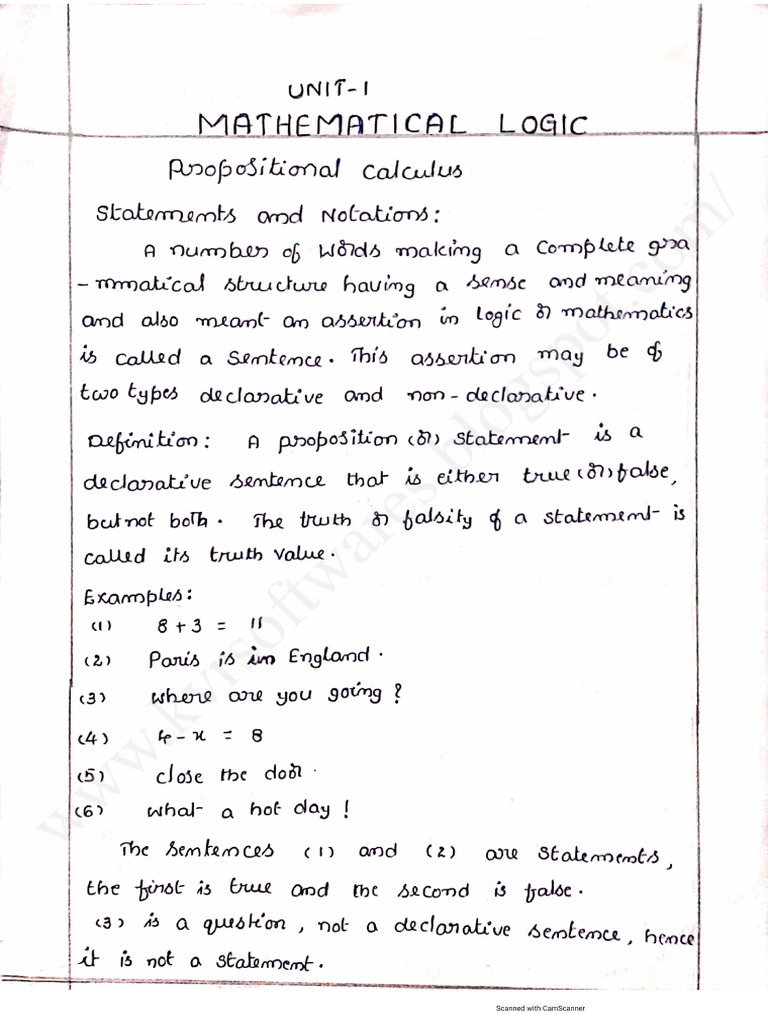 UNIT-1
MATHEMATICAL LOGIC
Propositional Calculus
Statements and Notations:
A number of words making a complete gra
-mmatical structure having a sense and meaning
and also meant an assertion in logic or mathematics
is called a sentence. This assertion may be of
two types declarative and non-declarative.
Definition: A proposition (or) statement is a
declarative sentence that is either true (or) false,
but not both. The truth or falsity of a statement is
called its truth value.
Examples:
(1) 8 + 3 = 11
(2) Paris is in England.
(3) where are you going?
(4) 4 - x = 8
(5) close the door.
(6) what a hot day!
The sentences (1) and (2) are statements,
the first is true and the second is false.
(3) is a question, not a declarative sentence, hence
it is not a statement.
www.kvrsoftwares.blogspot.com/
Scanned with CamScanner